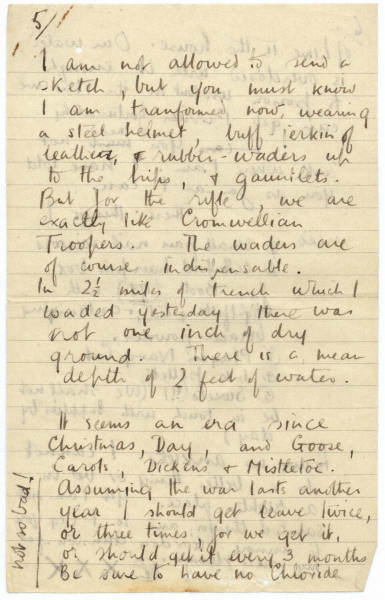 5/
I am not allowed to send a
sketch, but you must know
I am tranformed now, wearing
a steel helmet, buff jerkin of
leather, & rubber-waders up
to the hips, & gauntlets.
But for the rifle, we are
exactly like Cromwellian
Troopers. The waders are
of course indispensable.
In 2½ miles of trench which I
waded yesterday there was
not one inch of dry
ground. There is a mean
depth of 2 feet of water.
It seems an era since
Christmas, Day, and Goose,
Carols, Dickens & Mistletoe.
Assuming the war lasts another
year I should get leave twice,
or three times, for we get it,
or should get it every 3 months
Be sure to have no Chloride
not so bad!